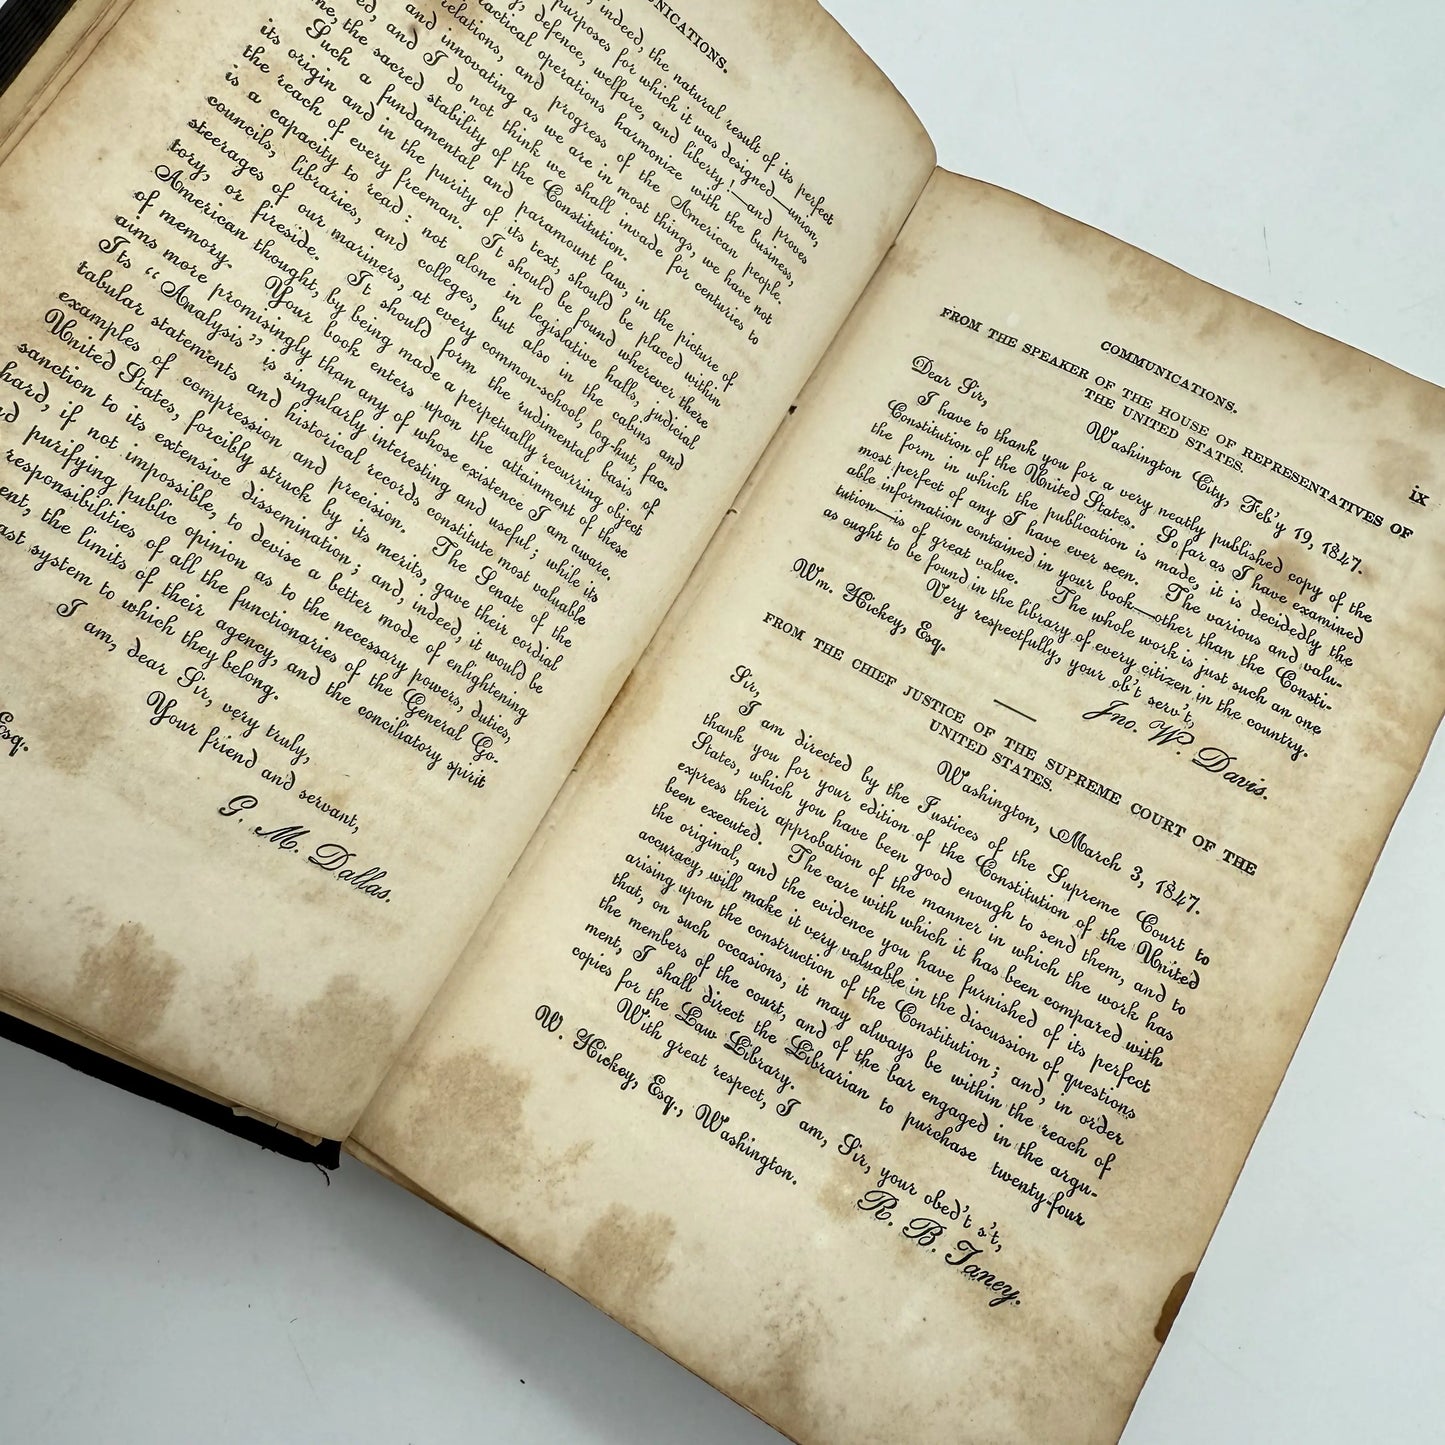 NICATIONS.
indeed, the natural result of its perfect
purposes for which it was designed—union,
defence, welfare, and liberty!—and proves
ractical operations harmonize with the business,
relations, and progress of the American people.
and innovating as we are in most things, we have not
ed, and I do not think we shall invade for centuries to
me, the sacred stability of the Constitution.
Such a fundamental and paramount law, in the picture of
its origin and in the purity of its text, should be placed within
the reach of every freeman. It should be found wherever there
is a capacity to read: not alone in legislative halls, judicial
councils, libraries, and colleges, but also in the cabins and
steerages of our mariners, at every common-school, log-hut, fac-
tory, or fireside. It should form the rudimental basis of
American thought, by being made a perpetually recurring object
of memory. Your book enters upon the attainment of these
aims more promisingly than any of whose existence I am aware.
Its "Analysis" is singularly interesting and useful; while its
tabular statements and historical records constitute most valuable
examples of compression and precision. The Senate of the
United States, forcibly struck by its merits, gave their cordial
sanction to its extensive dissemination; and, indeed, it would be
hard, if not impossible, to devise a better mode of enlightening
nd purifying public opinion as to the necessary powers, duties,
responsibilities of all the functionaries of the General Go-
ent, the limits of their agency, and the conciliatory spirit
ast system to which they belong.
I am, dear Sir, very truly,
Your friend and servant,
G. M. Dallas.
Esq.
COMMUNICATIONS.
ix
FROM THE SPEAKER OF THE HOUSE OF REPRESENTATIVES OF
THE UNITED STATES.
Washington City, Feb'y 19, 1847.
Dear Sir,
I have to thank you for a very neatly published copy of the
Constitution of the United States. So far as I have examined
the form in which the publication is made, it is decidedly the
most perfect of any I have ever seen. The various and valu-
able information contained in your book—other than the Consti-
tution—is of great value. The whole work is just such an one
as ought to be found in the library of every citizen in the country.
Very respectfully, your ob't serv't,
Jno. W. Davis.
Wm. Hickey, Esq.
FROM THE CHIEF JUSTICE OF THE SUPREME COURT OF THE
UNITED STATES.
Washington, March 3, 1847.
Sir,
I am directed by the Justices of the Supreme Court to
thank you for your edition of the Constitution of the United
States, which you have been good enough to send them, and to
express their approbation of the manner in which the work has
been executed. The care with which it has been compared with
the original, and the evidence you have furnished of its perfect
accuracy, will make it very valuable in the discussion of questions
arising upon the construction of the Constitution; and, in order
that, on such occasions, it may always be within the reach of
the members of the court, and of the bar engaged in the argu-
ment, I shall direct the Librarian to purchase twenty-four
copies for the Law Library.
With great respect, I am, Sir, your obed't s't,
R. B. Taney.
W. Hickey, Esq., Washington.